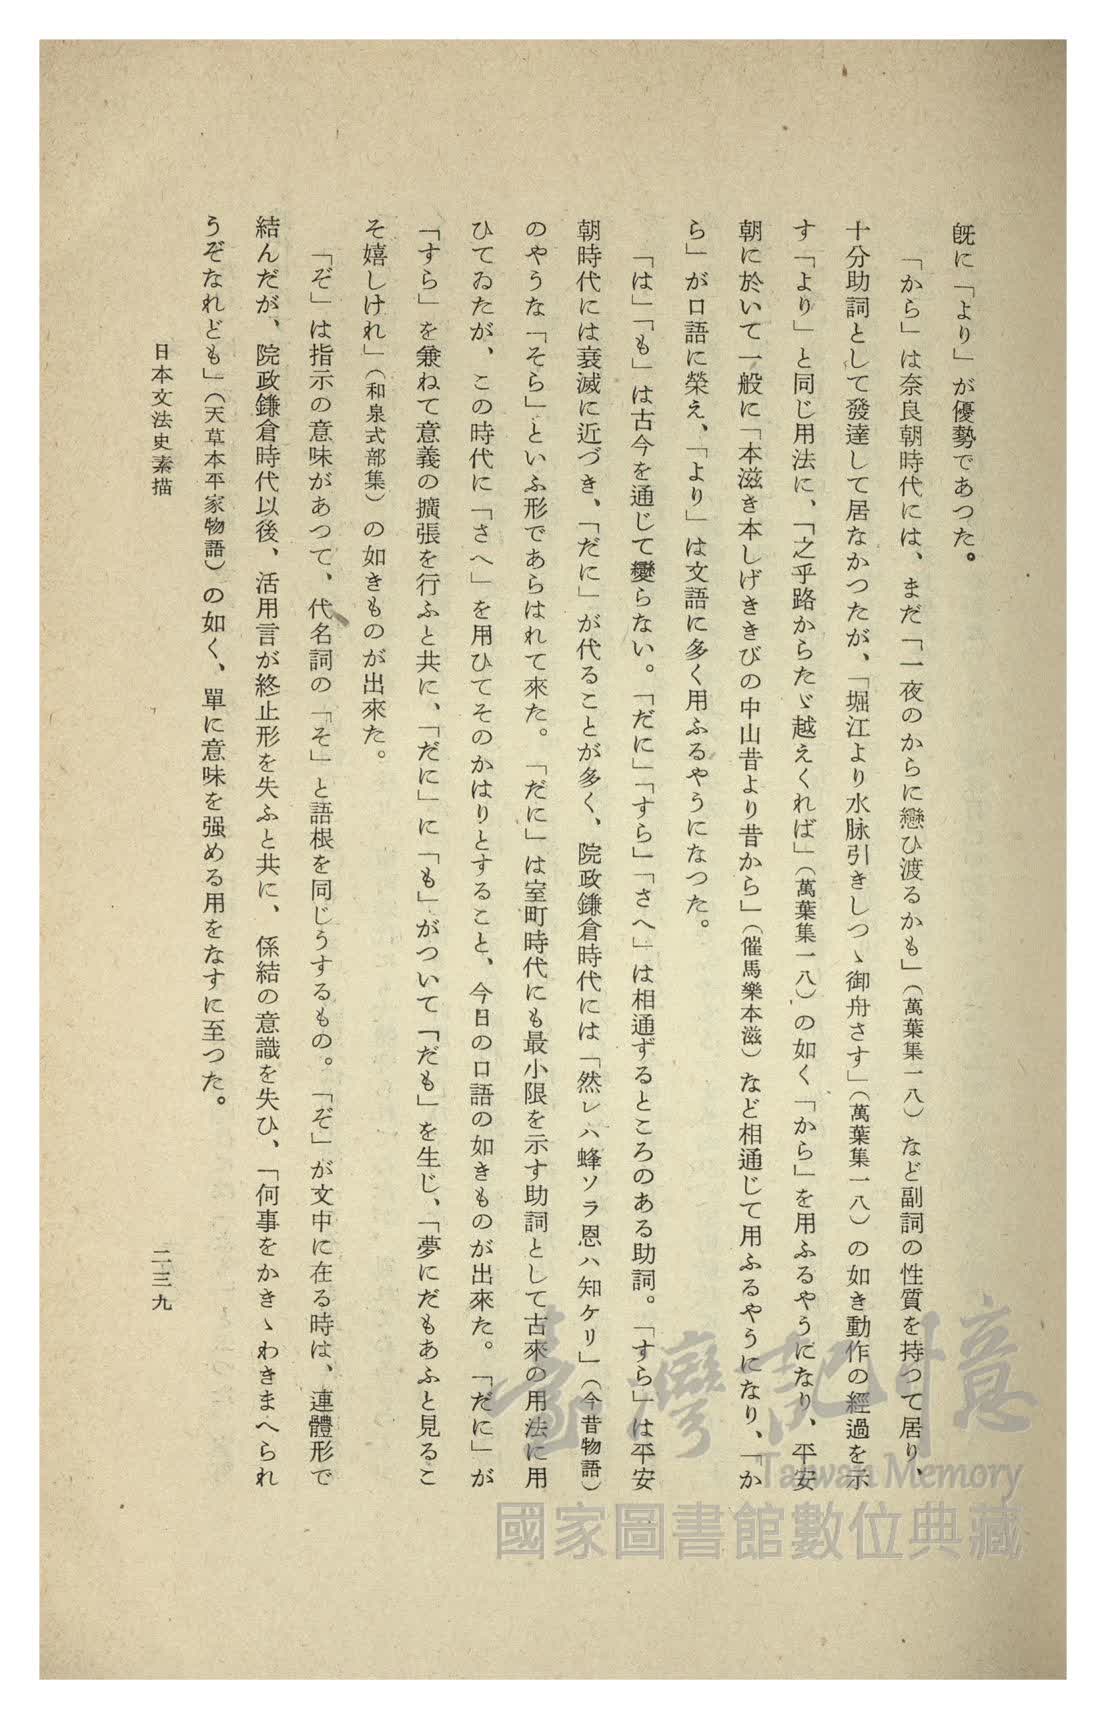 既に「より」が優勢であつた。
「から」は奈良朝時代には、まだ「一夜のからに戀ひ渡るかも」（萬葉集一八）など副詞の性質を持つて居り、
十分助詞として發達して居なかつたが、「堀江より水脉引きしつゝ御舟さす」（萬葉集一八）の如き動作の經過を示
す「より」と同じ用法に、「之乎路からたゞ越えくれば」（萬葉集一八）の如く「から」を用ふるやうになり、平安
朝に於いて一般に「本滋き本しげききびの中山昔より昔から」（催馬樂本滋）など相通じて用ふるやうになり、「か
ら」が口語に榮え、「より」は文語に多く用ふるやうになつた。
「は」「も」は古今を通じて變らない。「だに」「すら」「さへ」は相通ずるところのある助詞。「すら」は平安
朝時代には衰滅に近づき、「だに」が代ることが多く、院政鎌倉時代には「然レハ蜂ソラ恩ハ知ケリ」（今昔物語）
のやうな「そら」といふ形であらはれて來た。「だに」は室町時代にも最小限を示す助詞として古來の用法に用
ひてゐたが、この時代に「さへ」を用ひてそのかはりとすること、今日の口語の如きものが出來た。「だに」が
「すら」を兼ねて意義の擴張を行ふと共に、「だに」に「も」がついて「だも」を生じ、「夢にだもあふと見るこ
そ嬉しけれ」（和泉式部集）の如きものが出來た。
「ぞ」は指示の意味があつて、代名詞の「そ」と語根を同じうするもの。「ぞ」が文中に在る時は、連體形で
結んだが、院政鎌倉時代以後、活用言が終止形を失ふと共に、係結の意識を失ひ、「何事をかきゝわきまへられ
うぞなれども」（天草本平家物語）の如く、單に意味を强める用をなすに至つた。
日本文法史素描
二三九
臺灣記憶
Taiwan Memory
國家圖書館數位典藏